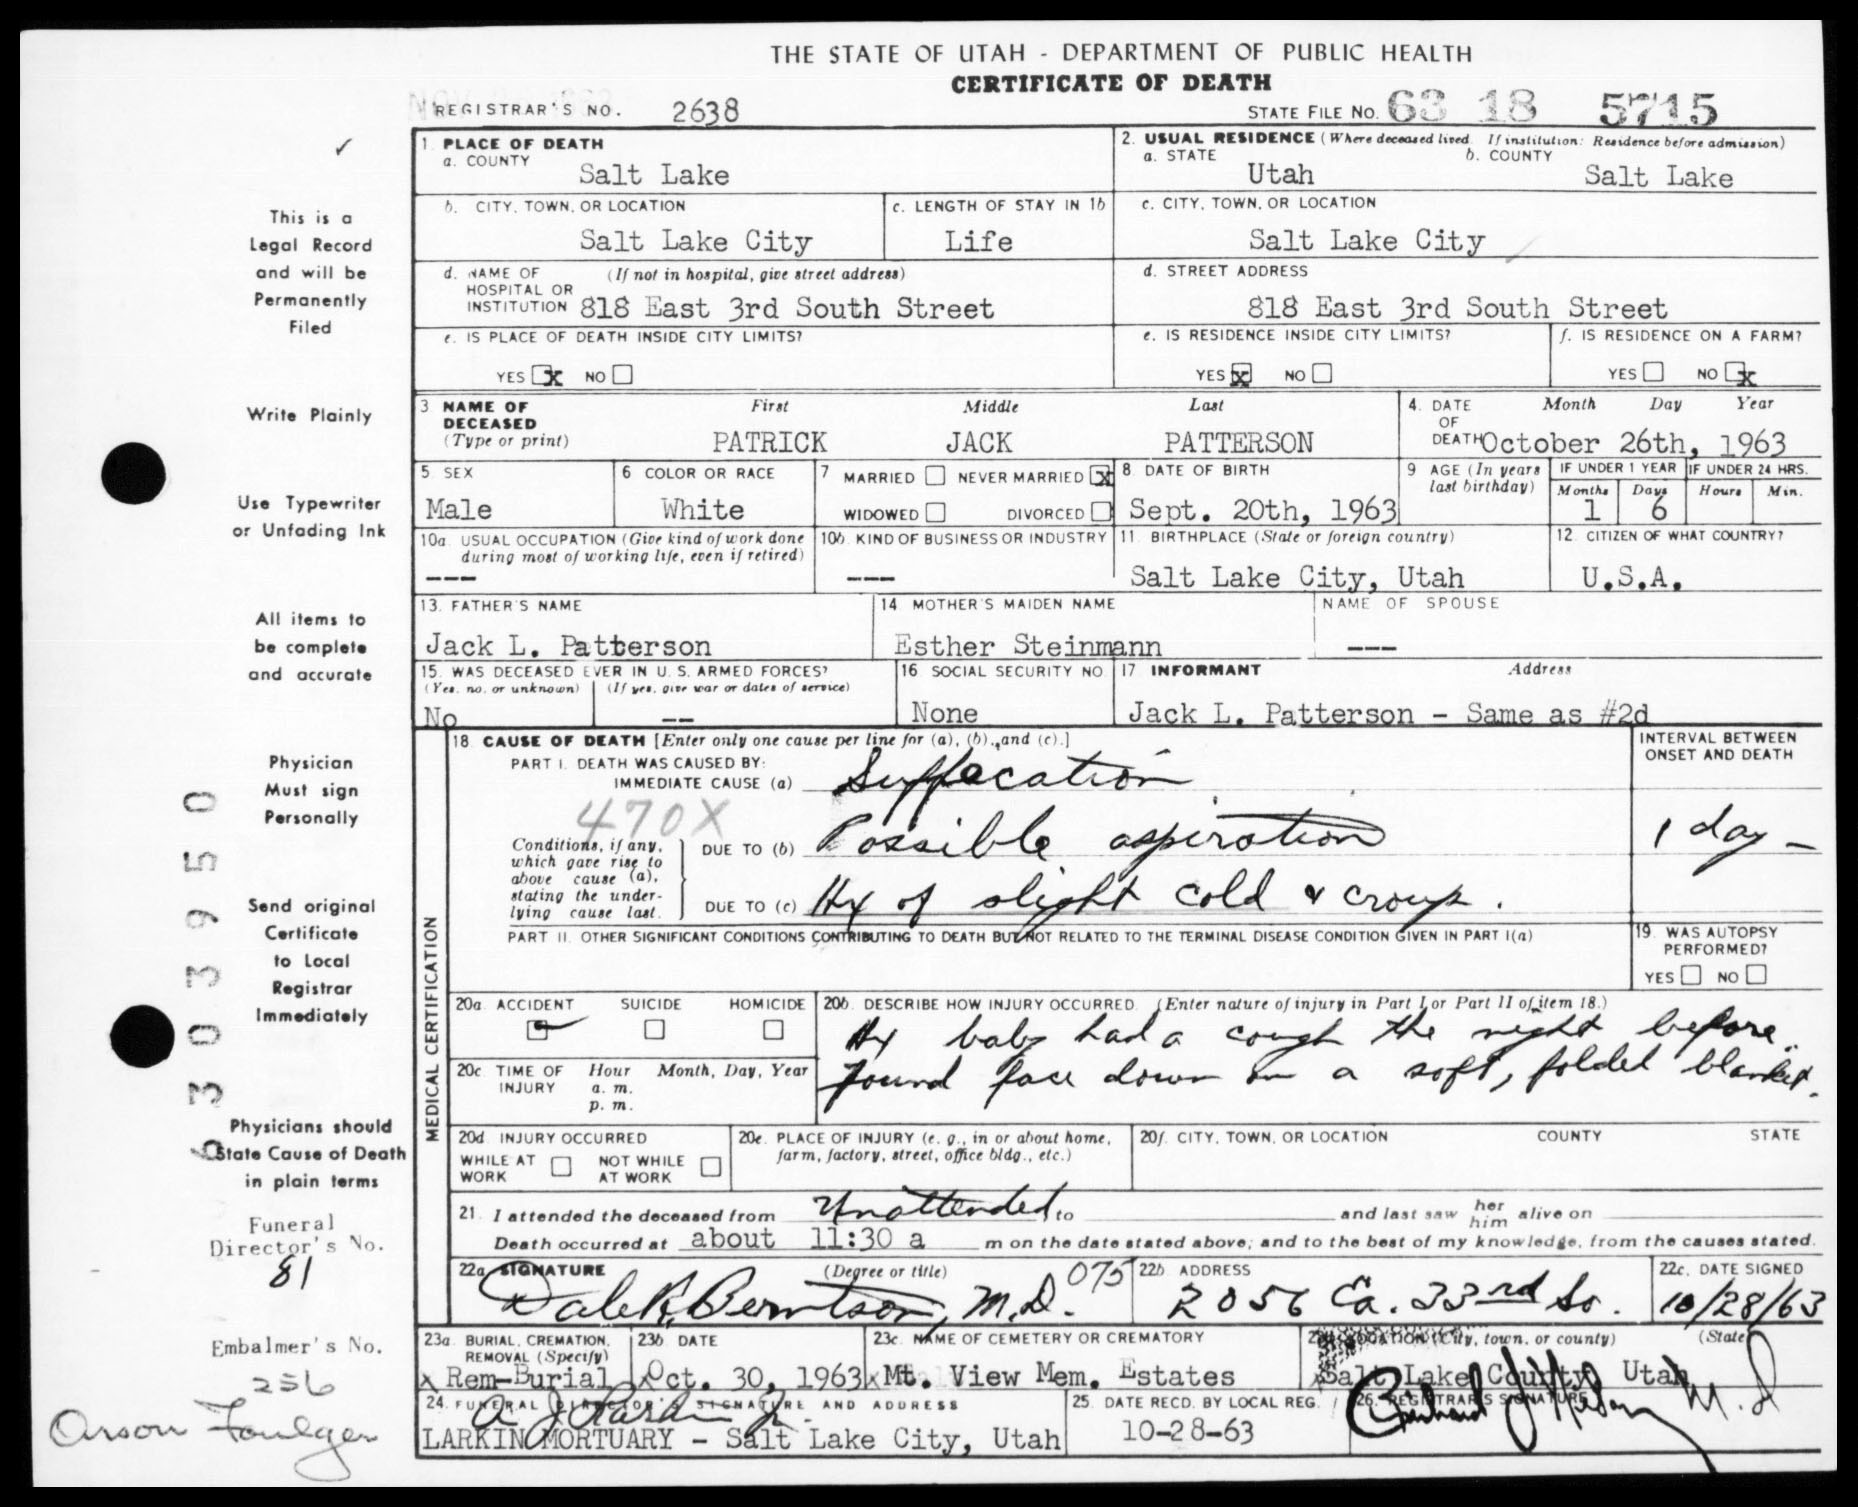 THE STATE OF UTAH - DEPARTMENT OF PUBLIC HEALTH
CERTIFICATE OF DEATH
REGISTRAR'S NO. 2638
STATE FILE NO. 63 18 5715
1. PLACE OF DEATH
a. COUNTY
Salt Lake
2. USUAL RESIDENCE (Where deceased lived. If institution: Residence before admission)
a. STATE b. COUNTY
Utah Salt Lake
b. CITY, TOWN, OR LOCATION
Salt Lake City
c. LENGTH OF STAY IN 1b
Life
c. CITY, TOWN, OR LOCATION
Salt Lake City
d. NAME OF HOSPITAL OR INSTITUTION (If not in hospital, give street address)
818 East 3rd South Street
d. STREET ADDRESS
818 East 3rd South Street
e. IS PLACE OF DEATH INSIDE CITY LIMITS?
YES X NO
e. IS RESIDENCE INSIDE CITY LIMITS?
YES X NO
f. IS RESIDENCE ON A FARM?
YES NO X
3 NAME OF DECEASED (Type or print)
First Middle Last
PATRICK JACK PATTERSON
4. DATE OF DEATH Month Day Year
October 26th, 1963
5. SEX
Male
6 COLOR OR RACE
White
7 MARRIED NEVER MARRIED X
WIDOWED DIVORCED
8 DATE OF BIRTH
Sept. 20th, 1963
9 AGE (In years last birthday)
IF UNDER 1 YEAR IF UNDER 24 HRS.
Months Days Hours Min.
1 6
10a. USUAL OCCUPATION (Give kind of work done during most of working life, even if retired)
---
10b. KIND OF BUSINESS OR INDUSTRY
---
11. BIRTHPLACE (State or foreign country)
Salt Lake City, Utah
12. CITIZEN OF WHAT COUNTRY?
U.S.A.
13. FATHER'S NAME
Jack L. Patterson
14 MOTHER'S MAIDEN NAME
Esther Steinmann
NAME OF SPOUSE
---
15. WAS DECEASED EVER IN U. S. ARMED FORCES?
(Yes, no, or unknown) (If yes, give war or dates of service)
No --
16 SOCIAL SECURITY NO.
None
17 INFORMANT Address
Jack L. Patterson - Same as #2d
MEDICAL CERTIFICATION
18. CAUSE OF DEATH [Enter only one cause per line for (a), (b), and (c).]
INTERVAL BETWEEN ONSET AND DEATH
PART I. DEATH WAS CAUSED BY:
IMMEDIATE CAUSE (a) Suffocation
470X
Conditions, if any, which gave rise to above cause (a), stating the underlying cause last.
DUE TO (b) Possible aspiration
1 day -
DUE TO (c) Hx of slight cold & croup.
PART II. OTHER SIGNIFICANT CONDITIONS CONTRIBUTING TO DEATH BUT NOT RELATED TO THE TERMINAL DISEASE CONDITION GIVEN IN PART I(a)
19. WAS AUTOPSY PERFORMED?
YES NO
20a. ACCIDENT SUICIDE HOMICIDE
20b. DESCRIBE HOW INJURY OCCURRED. (Enter nature of injury in Part I or Part II of item 18.)
Hx baby had a cough the night before.
Found face down on a soft, folded blanket.
20c. TIME OF INJURY Hour Month, Day, Year
a. m.
p. m.
20d INJURY OCCURRED
WHILE AT WORK NOT WHILE AT WORK
20e. PLACE OF INJURY (e. g., in or about home, farm, factory, street, office bldg., etc.)
20f. CITY, TOWN, OR LOCATION COUNTY STATE
21. I attended the deceased from Unattended, to and last saw her him alive on
Death occurred at about 11:30 a m on the date stated above; and to the best of my knowledge, from the causes stated.
22a. SIGNATURE (Degree or title)
Dale R. Berntson, M.D. 075
22b ADDRESS
2056 Ea. 33rd So.
22c. DATE SIGNED
10/28/63
23a. BURIAL, CREMATION, REMOVAL (Specify)
x Rem-Burial
23b DATE
x Oct. 30, 1963
23c. NAME OF CEMETERY OR CREMATORY
x Mt. View Mem. Estates
LOCATION (City, town, or county) (State)
Salt Lake County, Utah
24. FUNERAL DIRECTOR'S SIGNATURE AND ADDRESS
A J Larkin Jr.
LARKIN MORTUARY - Salt Lake City, Utah
25. DATE RECD. BY LOCAL REG.
10-28-63
26. REGISTRAR'S SIGNATURE
M.D
This is a
Legal Record
and will be
Permanently
Filed
Write Plainly
Use Typewriter
or Unfading Ink
All items to
be complete
and accurate
Physician
Must sign
Personally
Send original
Certificate
to Local
Registrar
Immediately
Physicians should
State Cause of Death
in plain terms
Funeral
Director's No.
81
Embalmer's No.
256
Orson Foulger
3030950